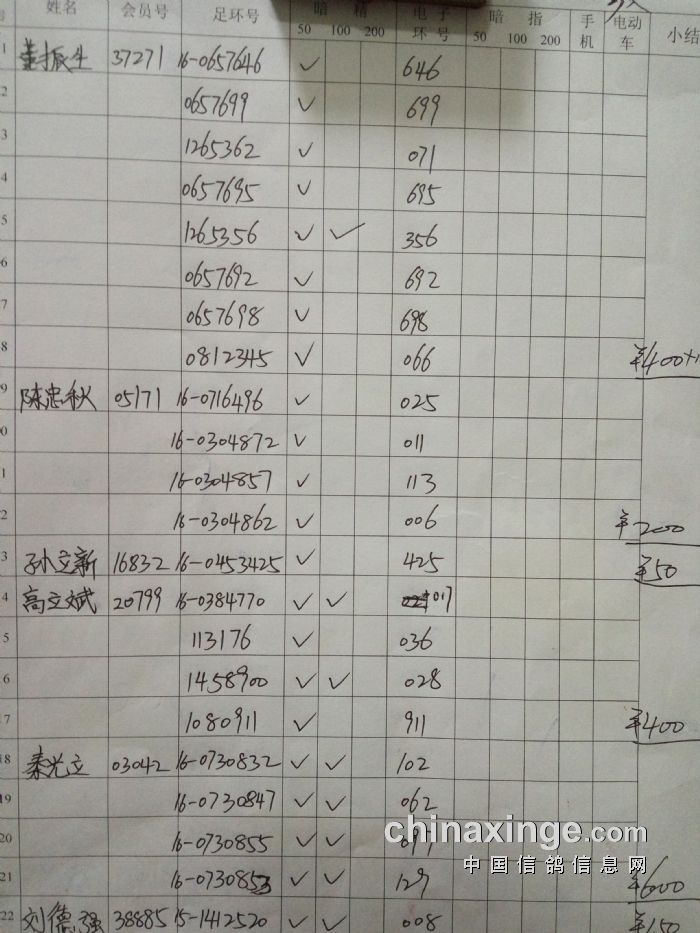 姓名 会员号 足环号 暗 精 电子 暗 指 手 电动 小结
50 100 200 环号 50 100 200 机 车
1 董振生 37271 16-0657646 ✓ 646
2 0657699 ✓ 699
3 1265362 ✓ 071
4 0657695 ✓ 695
5 1265356 ✓ ✓ 356
6 0657692 ✓ 692
7 0657698 ✓ 698
8 0812345 ✓ 066 ¥400+
9 陈忠秋 05171 16-0716496 ✓ 025
0 16-0304872 ✓ 011
1 16-0304857 ✓ 113
2 16-0304862 ✓ 006 ¥200
3 孙立新 16832 16-0453425 ✓ 425 ¥50
4 高立斌 20799 16-0384770 ✓ ✓ 017
5 113176 ✓ 036
6 1458900 ✓ ✓ 028
7 1080911 ✓ 911 ¥400
18 秦光立 03042 16-0730832 ✓ ✓ 102
19 16-0730847 ✓ ✓ 062
20 16-0730855 ✓ ✓
chinaxinge.com
中国信鸽信息网
21 16-0730853 ✓ ✓ 129 ¥600
22 刘德强 38885 15-1412520 ✓ ✓ 008 ¥150